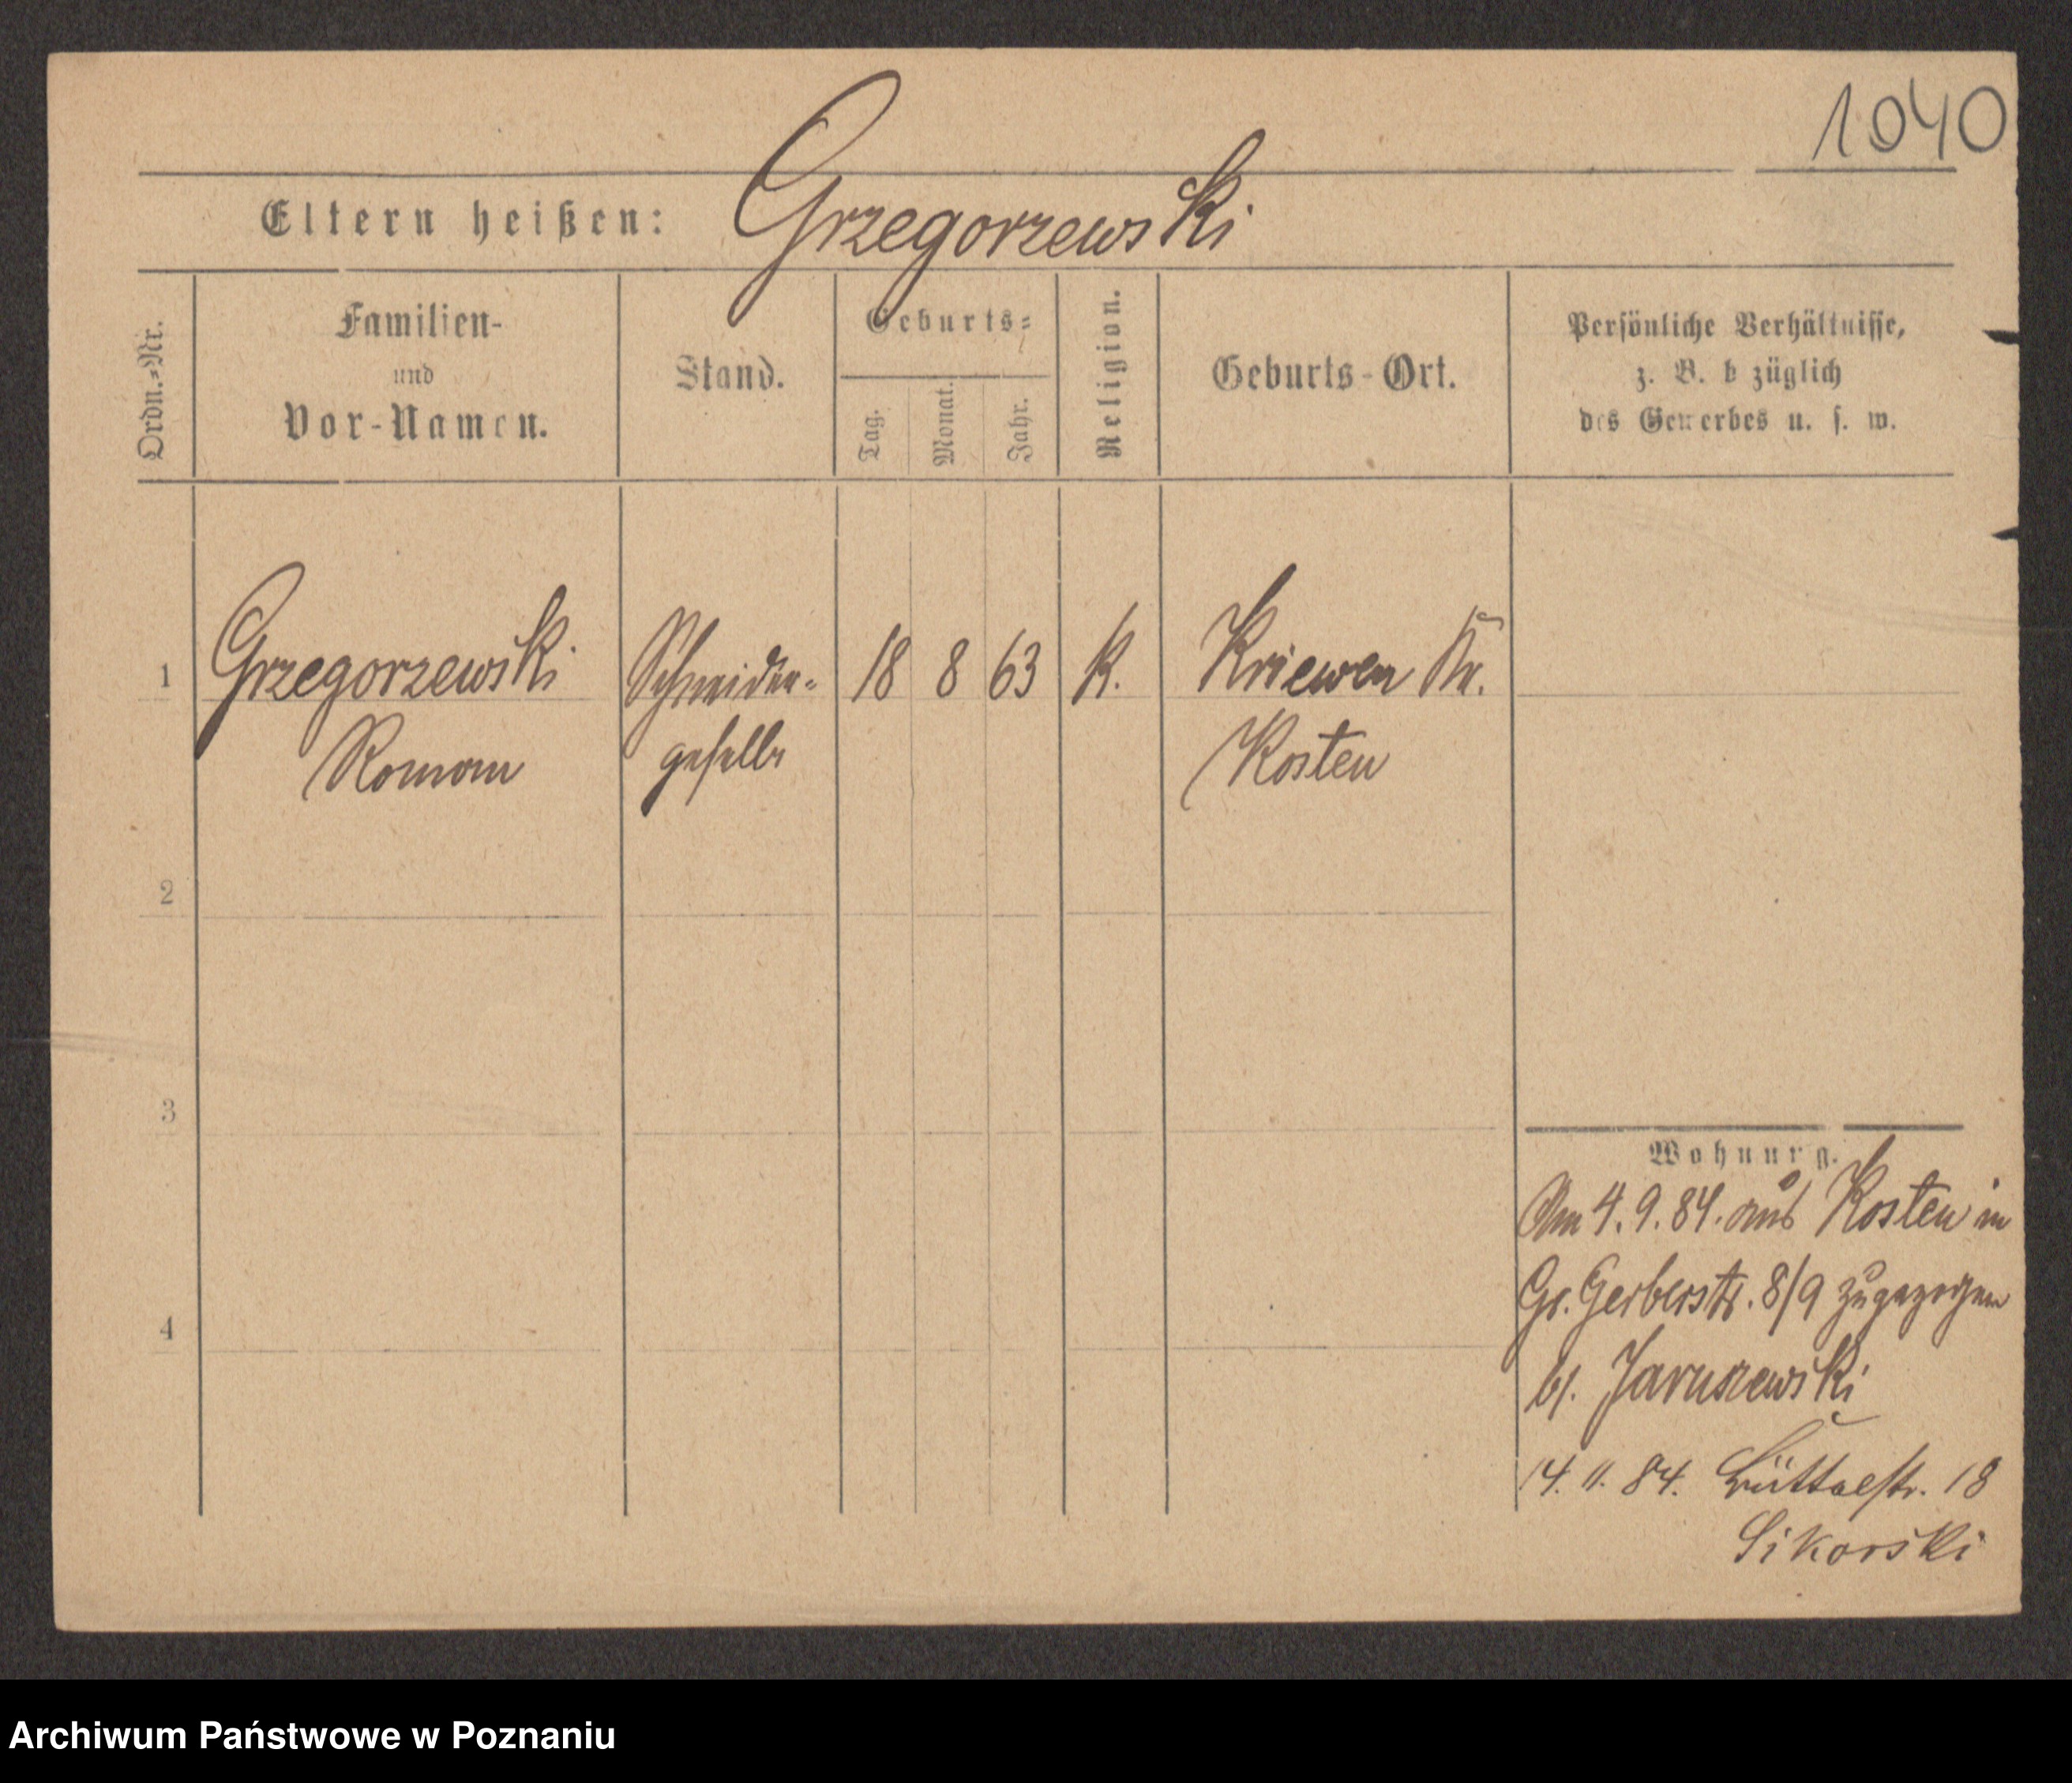 1040
Eltern heißen: Grzegorzewski
Ordn.=Nr.
Familien-
und
Vor-Namen.
Stand.
Geburts=
Tag.
Monat.
Jahr.
Religion.
Geburts-Ort.
Persönliche Verhältnisse,
z. B. b züglich
des Gewerbes u. s. w.
1 Grzegorzewski Schneider= 18 8 63 K. Kriewen Kr.
Roman geselle Kosten
2
3
4
Wohnung.
Am 4. 9. 84. aus Kosten in
Gr. Gerberstr. 8/9 zugezogen
b/. Jaruszewski
14. 11. 84. Büttelstr. 18
Sikorski
Archiwum Państwowe w Poznaniu